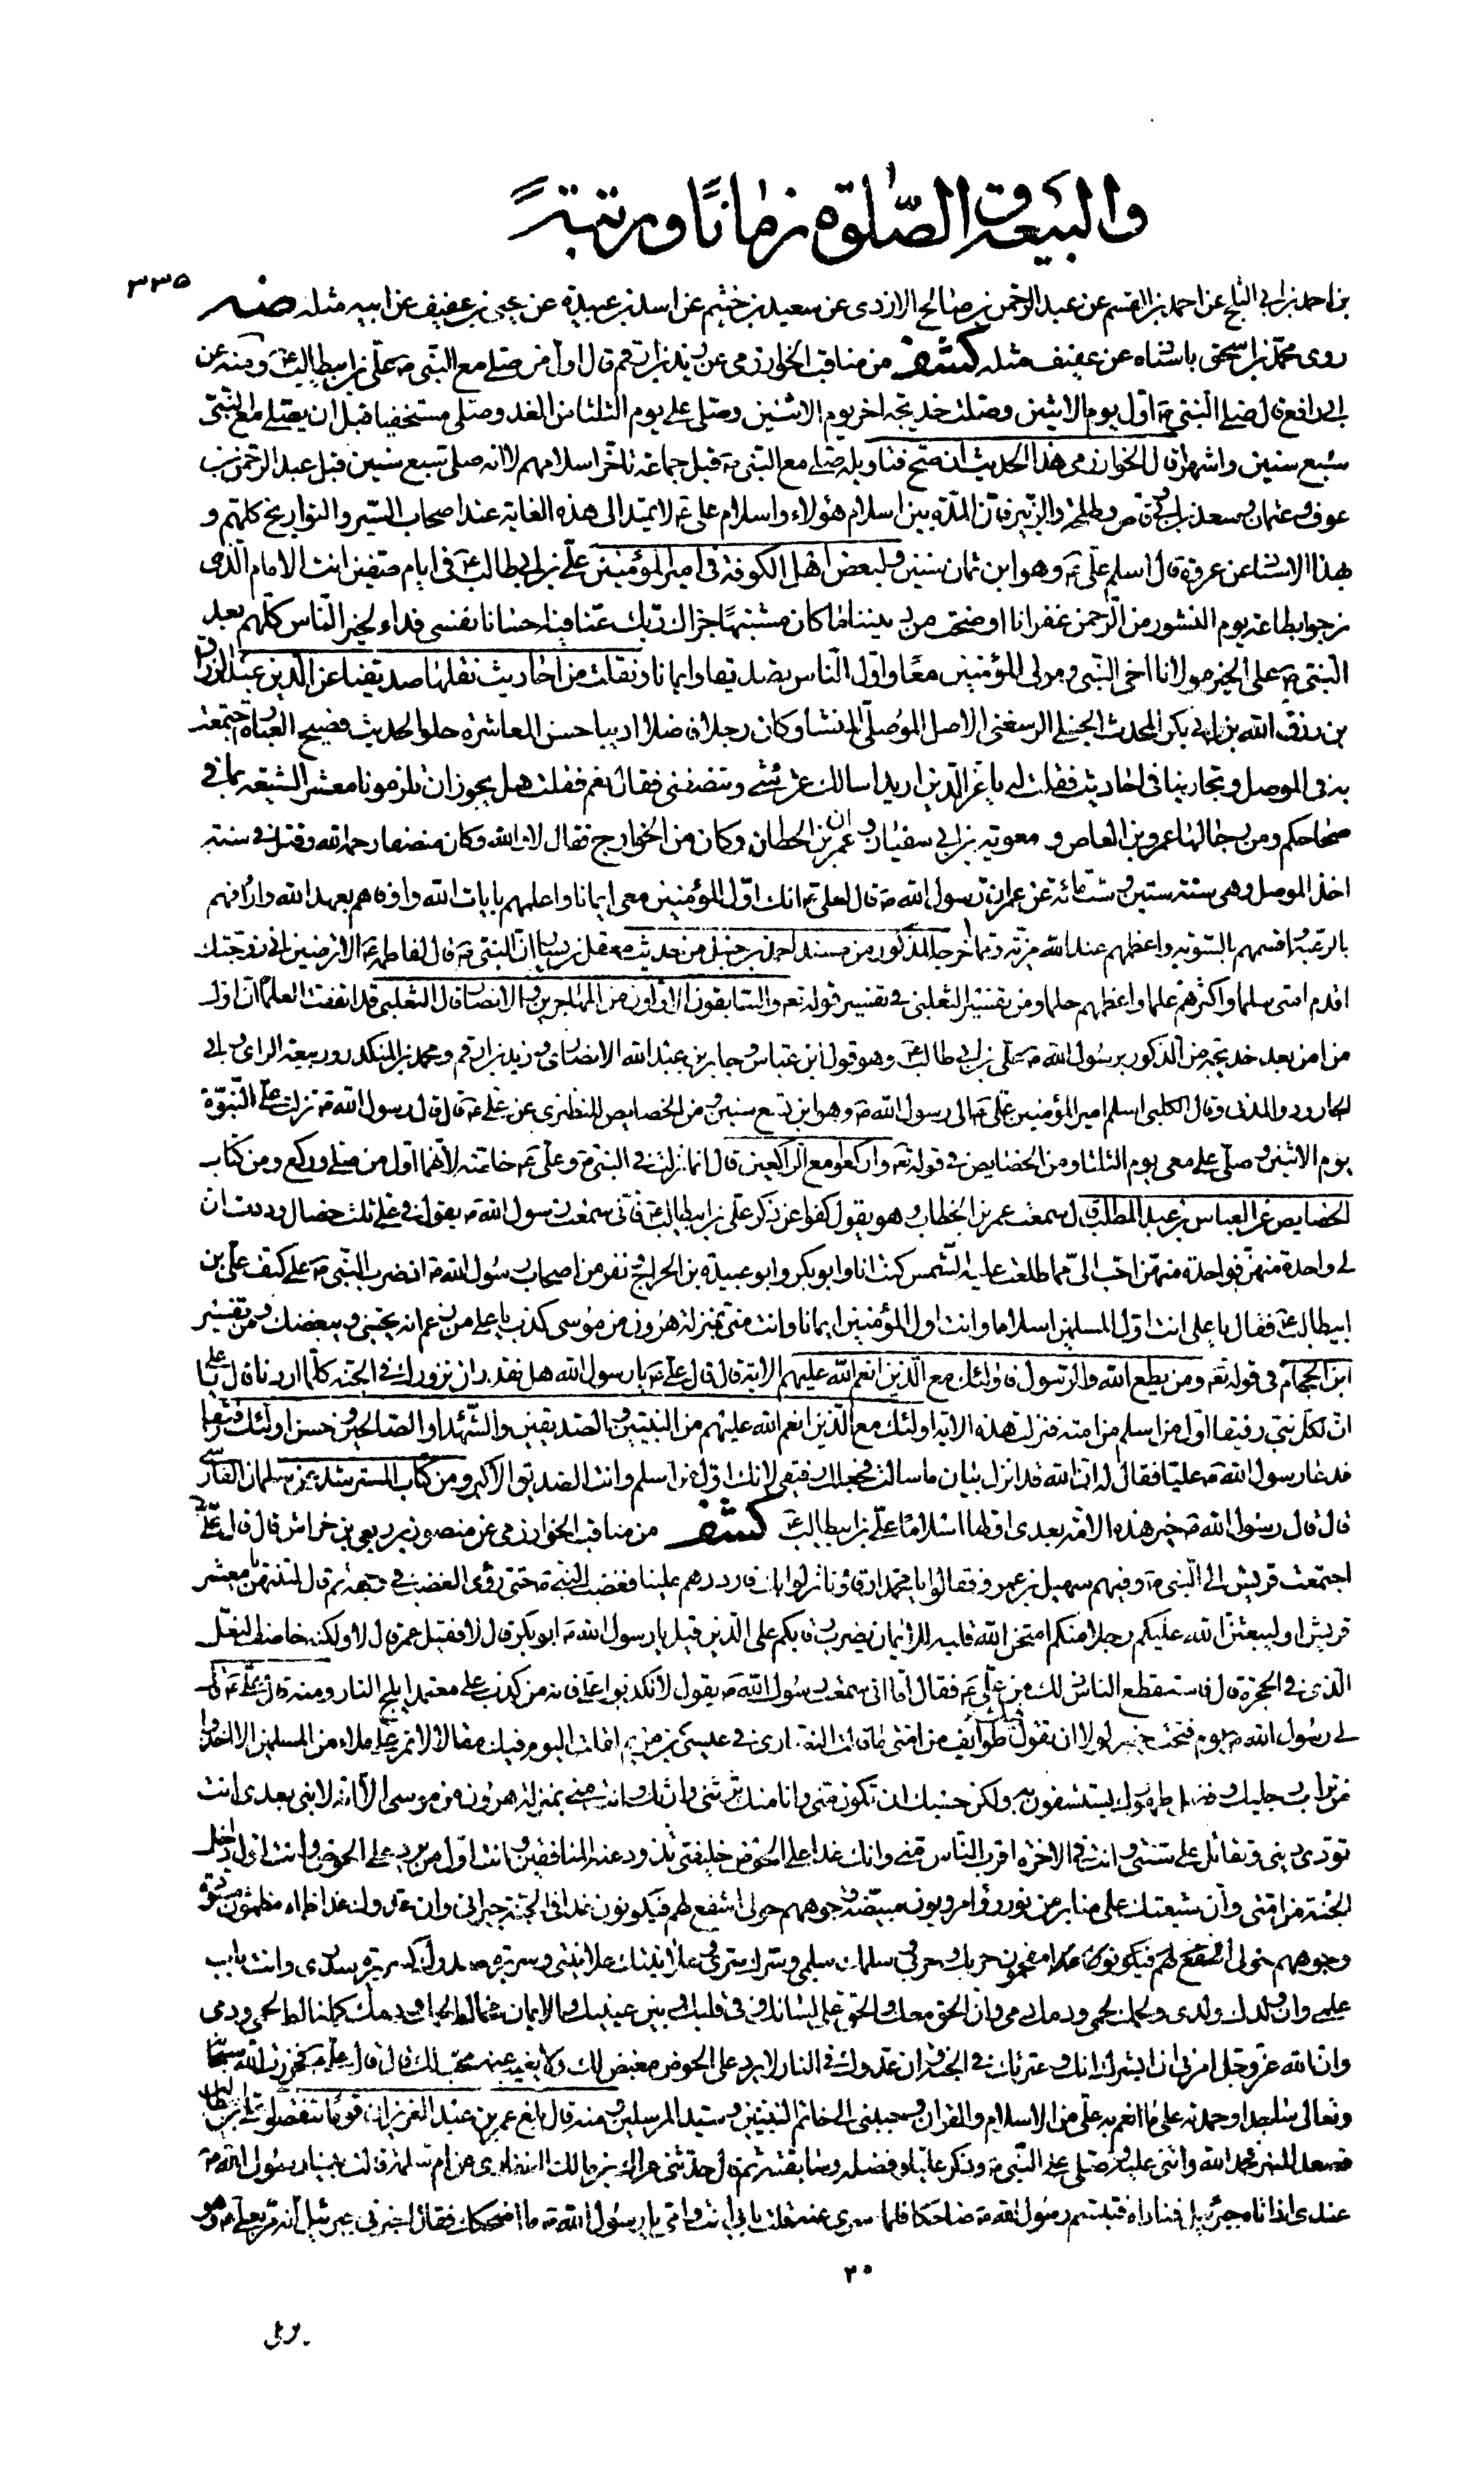 والبيعة والصلوة زمانا ورتبة
٣٣٥
بن احمد بن ابي الثلج عن احمد بن القسم عن عبد الرحمن بن صالح الازدى عن سعيد بن خثيم عن اسد بن عبيدة عن يحيى بن عفيف عن ابيه مثله
روى محمد بن اسحق باسناه عن عفيف مثله كشف من مناقب الخوارزمى عن زيد بن ارقم قال اول من صلى مع النبى ص على بن ابيطالب ع ومنه عن
ابى رافع قال صلى النبى ص اول يوم الاثنين وصلت خديجة اخر يوم الاثنين وصلى على يوم الثلثا من الغد وصلى مستخفيا قبل ان يصلى مع النبى
سبع سنين واشهرا قال الخوارزمى هذا الحديث ان صح فتاويله صلى مع النبى ص قبل جماعة تاخر اسلامهم لا انه صلى سبع سنين قبل عبد الرحمن بن
عوف وعثمان وسعد بن ابى وقاص وطلحة والزبير فان المدة بين اسلام هؤلاء واسلام على ع لا تمتد الى هذه الغاية عند اصحاب السير والتواريخ كلهم و
بهذا الاسناد عن عروة قال اسلم على ع وهو ابن ثمان سنين ولبعض اهل الكوفة فى امير المؤمنين على بن ابى طالب ع فى ايام صفين انت الامام الذى
نرجو بطاعته يوم النشور من الرحمن غفرانا اوضحت من ديننا ما كان مشتبها جزاك ربك عنا فيه احسانا نفسى فداء لخير الناس كلهم بعد
النبى ص على الخير مولانا اخى النبى ومولى المؤمنين معا واول الناس تصديقا وايمانا ونقلت من احاديث نقلها صديقنا عز الدين عبد الرزاق
بن رزق الله بن ابى بكر المحدث الحنبلى الرسعنى الاصل الموصلى المنشا وكان رجلا فاضلا اديبا حسن المعاشرة حلو الحديث فصيح العبارة اجتمعت
به فى الموصل وتجارينا فى احاديث فقلت له يا عز الدين اريد اسالك عن شئ وتنصفنى فقال نعم فقلت هل يجوز ان تلزمونا معشر الشيعة بما فى
صحاحكم ومن رجالها عمرو بن العاص و معوية بن ابى سفيان و عمران بن الحطان وكان من الخوارج فقال لا والله وكان منصفا رحمه الله وقتل فى سنة
اخذ الموصل وهى سنة ستين وستمائة عن عمر ان رسول الله ص قال لعلى ع انك اول المؤمنين معى ايمانا واعلمهم بايات الله واوفاهم بعهد الله وارافهم
بالرعية واقسمهم بالسوية واعظمهم عند الله مزية ومما خرجه المذكور من مسند احمد بن حنبل من حديث معقل بن يسار ان النبى ص قال لفاطمة ع الا ترضين انى زوجتك
اقدم امتى سلما واكثرهم علما واعظمهم حلما ومن تفسير الثعلبى فى تفسير قوله تعه والسابقون الاولون من المهاجرين والانصار قال الثعلبى قد اتفقت العلما ان اول
من امن بعد خديجة من الذكور برسول الله ص على بن ابى طالب ع وهو قول ابن عباس وجابر بن عبد الله الانصارى وزيد بن ارقم ومحمد بن المنكدر وربيعة الراى وابى
الجارود والمدنى وقال الكلبى اسلم امير المؤمنين على ع الى رسول الله ص وهو ابن تسع سنين ومن الخصايص للنطنزى عن على ع قال قال رسول الله ص نزلت على النبوة
يوم الاثنين وصلى على معى يوم الثلثا ومن الخصايص فى قوله تعه واركعوا مع الراكعين قال انما نزلت فى النبى ص وعلى ع خاصة لانهما اول من صلى وركع ومن كتاب
الخصايص عن العباس بن عبد المطلب قال سمعت عمر بن الخطاب وهو يقول كفوا عن ذكر على بن ابيطالب ع فانى سمعت رسول الله ص يقول فى على ثلث خصال وددت ان
لى واحدة منهن فواحدة منهن احب الى مما طلعت عليه الشمس كنت انا وابو بكر وابو عبيدة بن الجراح ونفر من اصحاب رسول الله ص اذ ضرب النبى ص على كتف على بن
ابيطالب ع فقال يا على انت اول المسلمين اسلاما وانت اول المؤمنين ايمانا وانت منى بمنزلة هرون من موسى كذب يا على من زعم انه يحبنى ويبغضك ومن تفسير
ابن الحجام فى قوله تعه ومن يطع الله والرسول فاولئك مع الذين انعم الله عليهم الاية قال قال على ع يا رسول الله هل نقدر ان نزورك فى الجنة كلما اردنا قال يا على
ان لكل نبى رفيقا اول من اسلم من امته فنزلت هذه الاية اولئك مع الذين انعم الله عليهم من النبيين والصديقين والشهداء والصالحين وحسن اولئك رفيقا
فدعا رسول الله ص عليا فقال له ان الله قد انزل بيان ما سالت فجعلك رفيقى لانك اول من اسلم وانت الصديق الاكبر ومن كتاب المسترشد عن سلمان الفارسى
قال قال رسول الله ص خير هذه الامة بعدى اولها اسلاما على بن ابيطالب ع كشف من مناقب الخوارزمى عن منصور بن ربعى بن خراش قال قال على ع
اجتمعت قريش الى النبى ص وفيهم سهيل بن عمرو فقالوا يا محمد ارقاؤنا نزلوا بك فارددهم علينا فغضب النبى ص حتى رؤى الغضب فى وجهه ثم قال لتنتهن يا معشر
قريش او ليبعثن الله عليكم رجلا منكم امتحن الله قلبه للايمان يضرب رقابكم على الدين قيل يا رسول الله ص ابو بكر قال لا فقيل عمر قال لا ولكنه خاصف النعل
الذى فى الحجرة قال فاستقطع الناس ذلك من على ع فقال اما انى سمعت رسول الله ص يقول لا تكذبوا على فانه من كذب على معتمدا يلج النار ومنه قال على ع قال
لى رسول الله ص يوم فتحت خيبر لولا ان تقول طوائف من امتى ما قالت النصارى فى عيسى بن مريم لقلت اليوم فيك مقالا لا تمر على ملاء من المسلمين الا اخذوا
من تراب رجليك وفضل طهورك يستشفون به ولكن حسبك ان تكون منى وانا منك ترثنى وارثك وانت منى بمنزلة هرون من موسى الا انه لا نبى بعدى انت
تودى دينى وتقاتل على سنتى وانت فى الاخرة اقرب الناس منى وانك غدا على الحوض خليفتى تذود عنه المنافقين وانت اول من يرد على الحوض وانت اول داخل
الجنة من امتى وان شيعتك على منابر من نور رواء مرويون مبيضة وجوههم حولى اشفع لهم فيكونون غدا فى الجنة جيرانى وان عدوك غدا ظماء مظمئون مسودة
وجوههم حربك حربى سلمك سلمى وسرك سرى وعلانيتك علانيتى وسريرة صدرك كسريرة صدرى وانت باب
علمى وان ولدك ولدى ولحمك لحمى ودمك دمى وان الحق معك والحق على لسانك وفى قلبك وبين عينيك والايمان مخالط لحمك ودمك كما خالط لحمى ودمى
وان الله عز وجل امرنى ان ابشرك انك وعترتك فى الجنة وان عدوك فى النار لا يرد على الحوض مبغض لك ولا يغيب عنه محب لك قال قال على ع فخررت لله سبحانه
وتعالى ساجدا وحمدته على ما انعم به على من الاسلام والقران وحببنى الى خاتم النبيين وسيد المرسلين ومنه قال بلغ عمر بن عبد العزيز ان قوما تنقصوا على بن ابيطالب
فصعد المنبر فحمد الله واثنى عليه وصلى على النبى ص وذكر عليا وفضله وسابقته ثم قال حدثنى عراك بن مالك الغفارى عن ام سلمة قالت بينا رسول الله ص
عندى اذ اتاه جبرئيل فناداه فتبسم رسول الله ص ضاحكا فلما سرى عنه قلت بابى انت وامى يا رسول الله ص ما اضحكك فقال اخبرنى جبرئيل انه مر بعلى ع وهو
٢٠